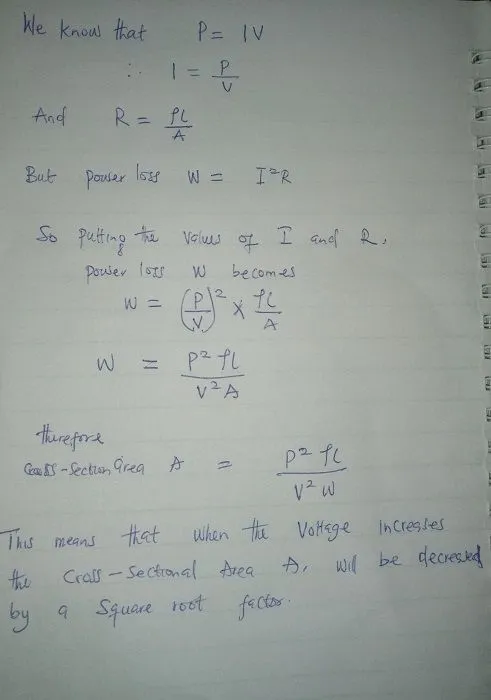 We know that P = IV
∴ I = P/V
And R = ρL/A
But power loss W = I²R
So putting the values of I and R,
power loss W becomes
W = (P/V)² × ρL/A
W = P² ρL / V² A
therefore
Cross-Section Area A = P² ρL / V² W
This means that when the Voltage increases
the Cross-Sectional Area A, will be decreased
by a Square root factor.